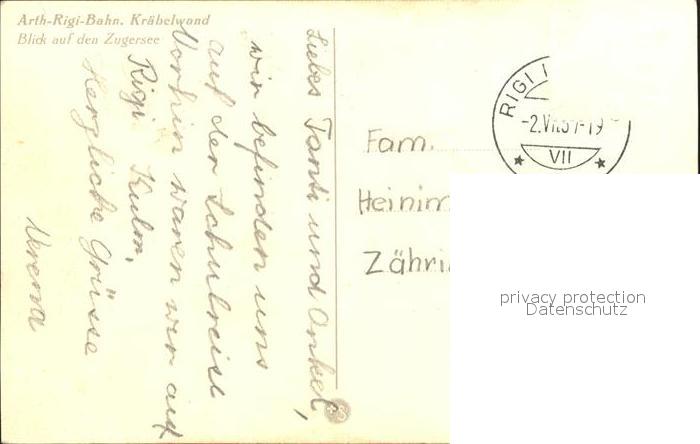 Arth-Rigi-Bahn. Kräbelwand
Blick auf den Zugersee
Liebes Tanti und Onkel,
wir befinden uns
auf der Schulreise
Vorhin waren wir auf
Rigi Kulm.
Herzliche Grüsse
Verena
RIGI
-2.VII.57-19
VII
Fam.
Heinim
Zähri
privacy protection
Datenschutz